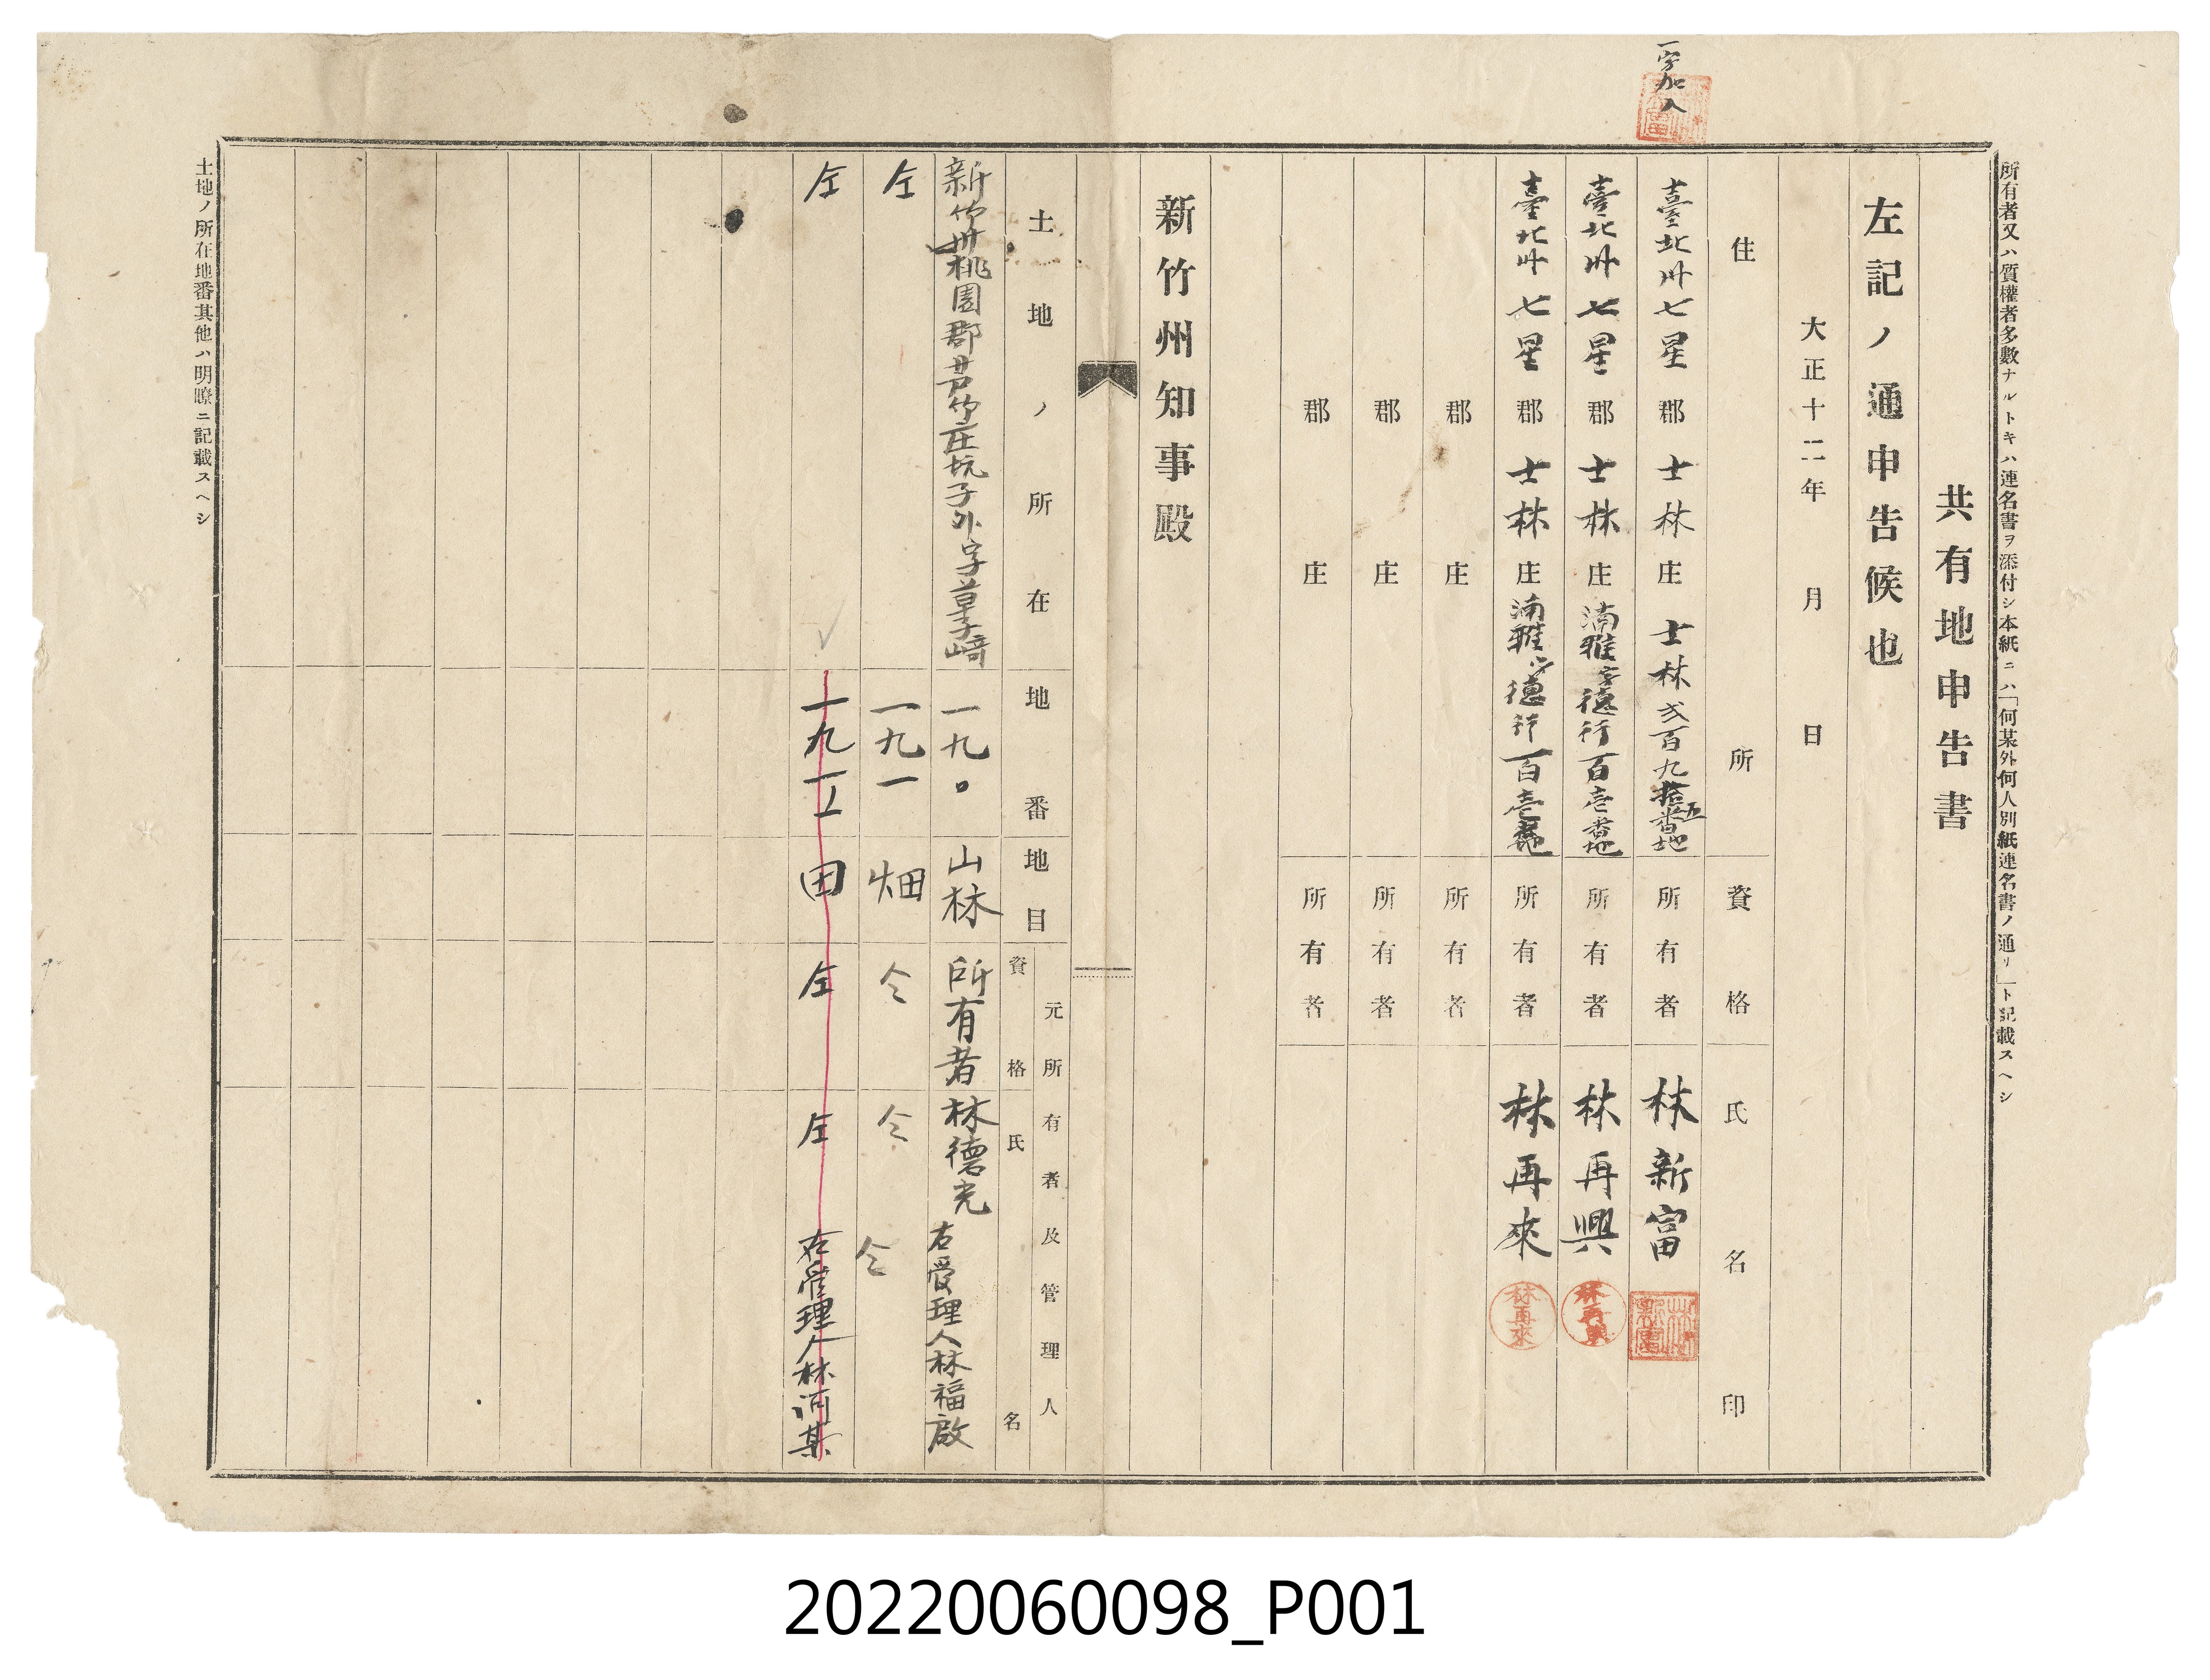 一字加入
所有者又ハ質權者多數ナルトキハ連名書ヲ添付シ本紙ニハ「何某外何人別紙連名書ノ通リ」ト記載スヘシ
共有地申告書
左記ノ通申告候也
大正十二年 月 日
住所 資格 氏名印
臺北州七星郡士林庄士林弐百九拾五番地 所有者 林新富
臺北州七星郡士林庄湳雅字德行百壱番地 所有者 林再興 林再興
臺北州七星郡士林庄湳雅字德行百壱番地 所有者 林再來 林再來
郡 庄 所有者
郡 庄 所有者
郡 庄 所有者
新竹州知事殿
土地ノ所在 地番 地目 元所有者及管理人
資格 氏名
新竹州桃園郡芦竹庄坑子外字草子崎 一九〇 山林 所有者 林德光 右管理人林福啟
仝 一九一 畑 仝 仝 仝
仝 一九一 田 仝 仝 右管理人林
土地ノ所在地番其他ハ明瞭ニ記載スヘシ
20220060098_P001